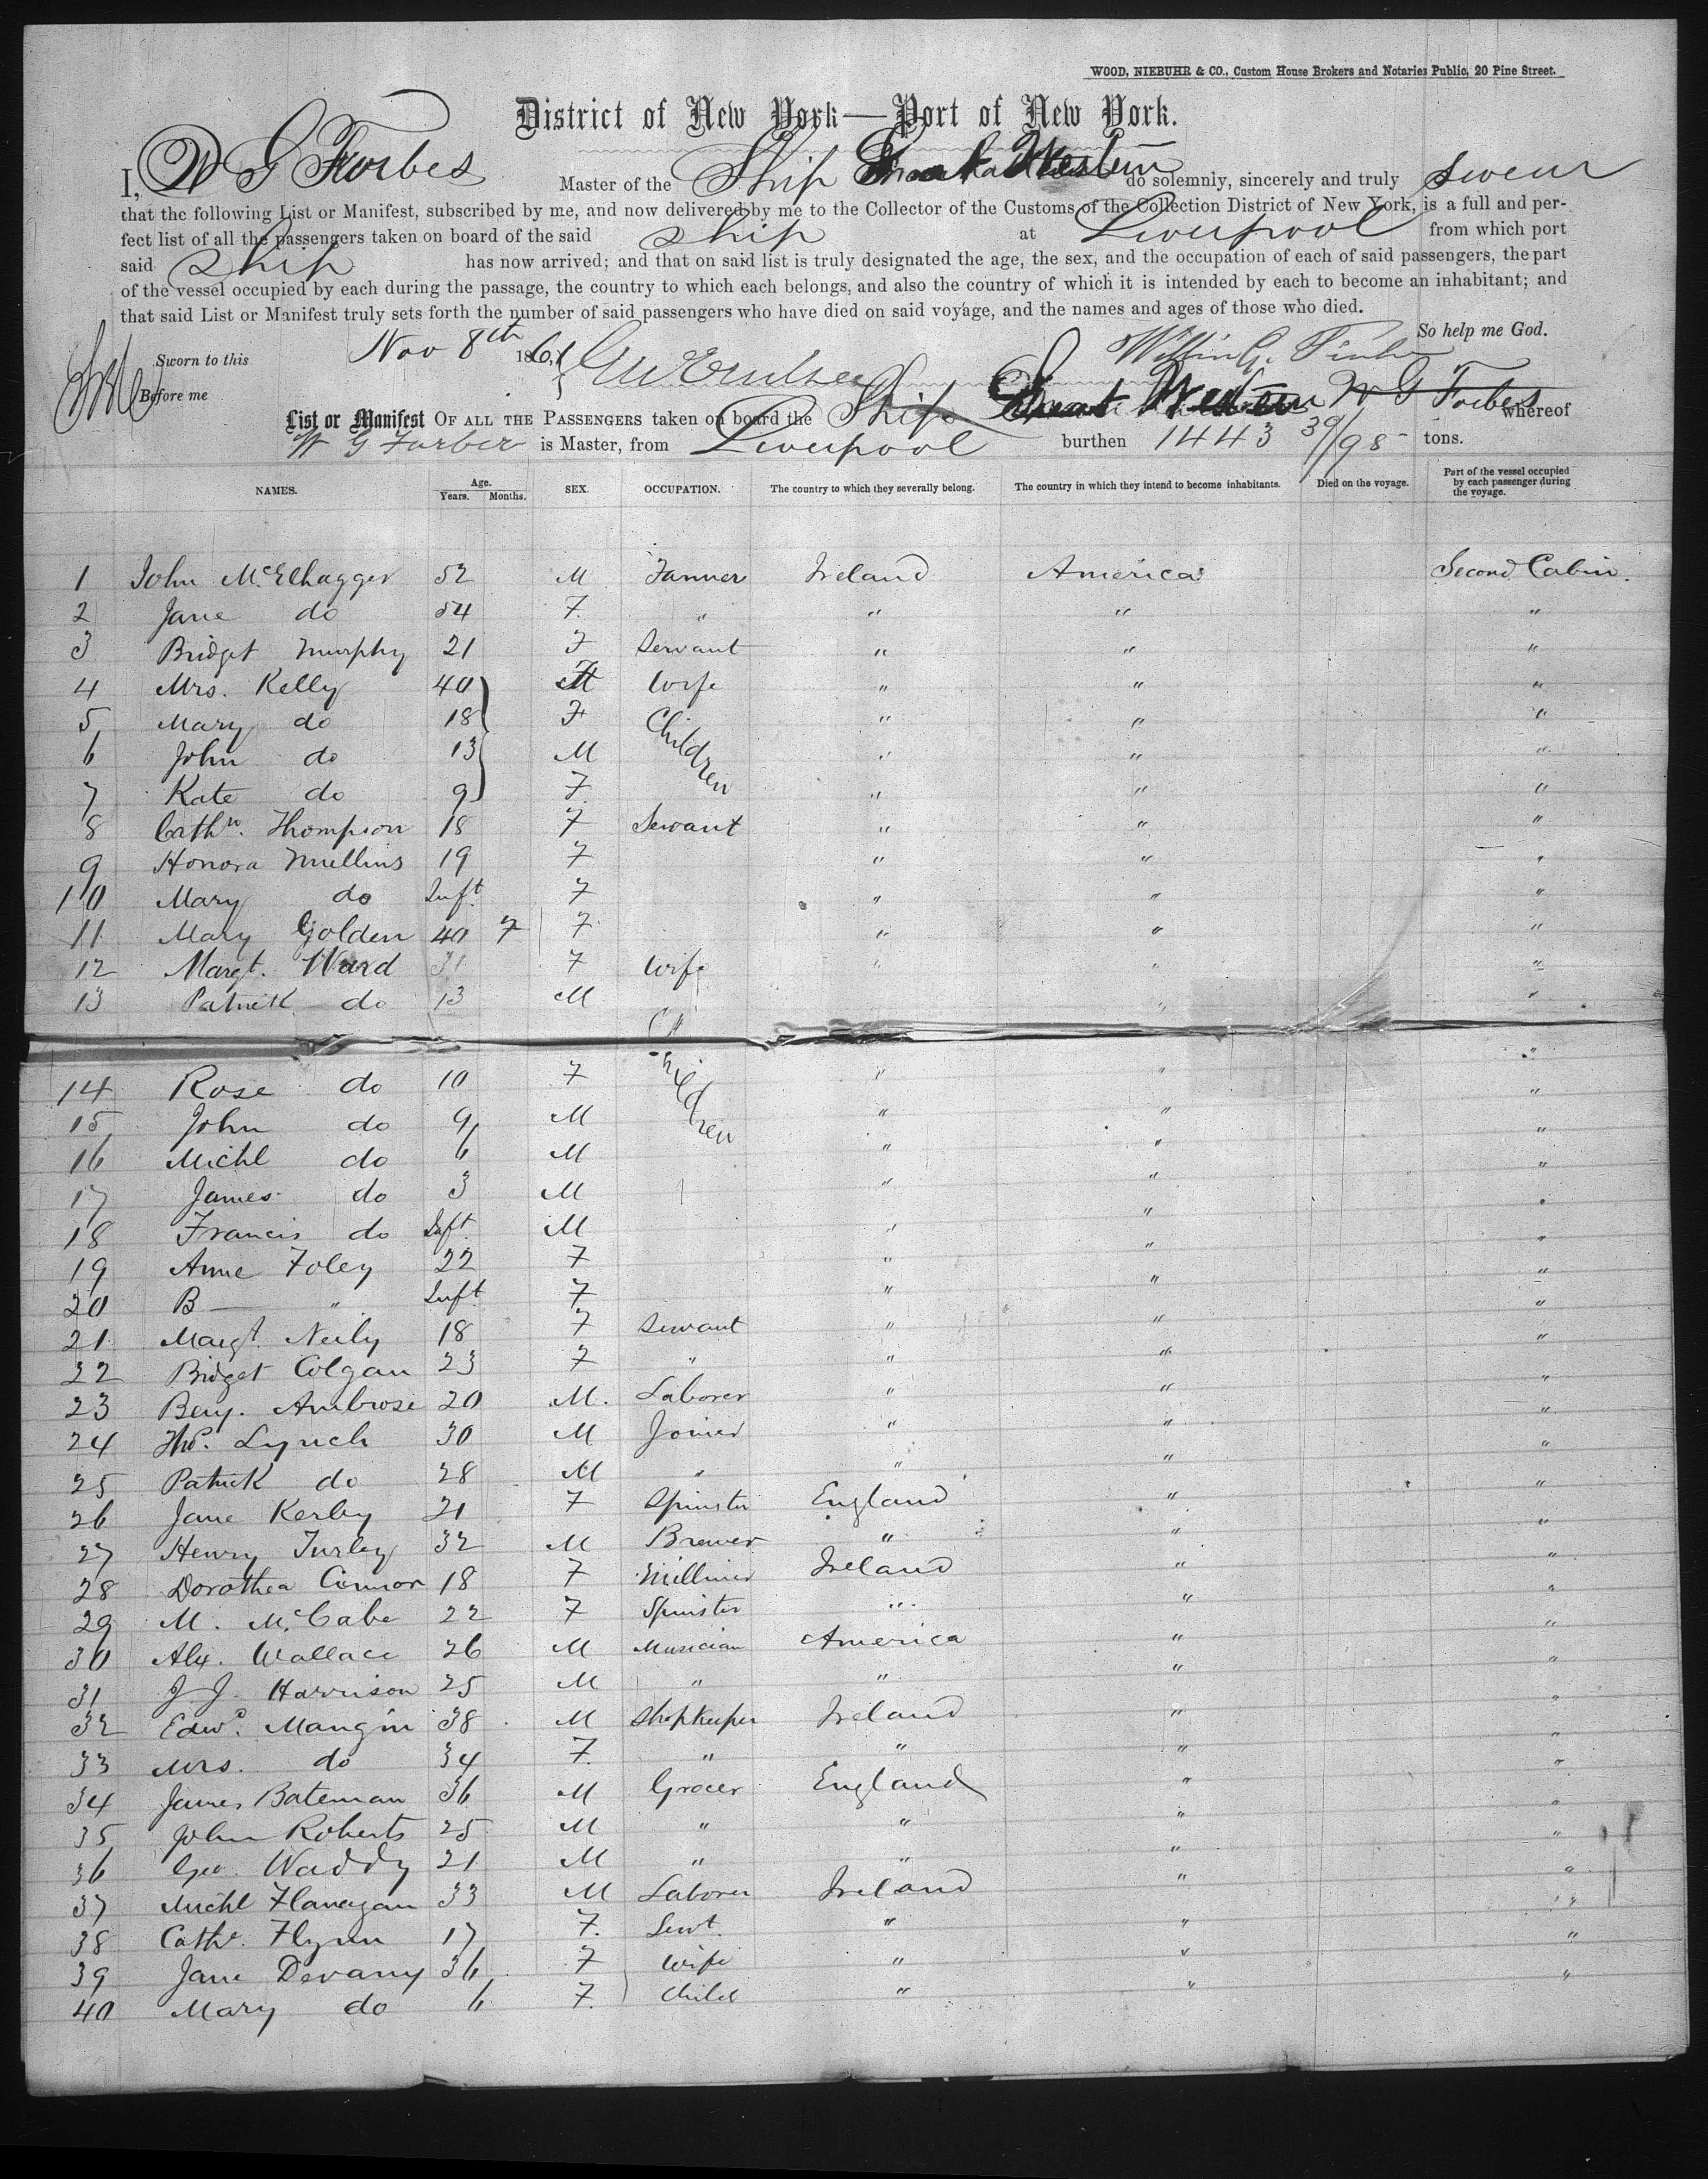 WOOD, NIEBUHR & CO., Custom House Brokers and Notaries Public, 20 Pine Street.
District of New York—Port of New York.
I, W G Forbes Master of the Ship Great Western do solemnly, sincerely and truly swear
that the following List or Manifest, subscribed by me, and now delivered by me to the Collector of the Customs of the Collection District of New York, is a full and per-
fect list of all the passengers taken on board of the said ship at Liverpool from which port
said ship has now arrived; and that on said list is truly designated the age, the sex, and the occupation of each of said passengers, the part
of the vessel occupied by each during the passage, the country to which each belongs, and also the country of which it is intended by each to become an inhabitant; and
that said List or Manifest truly sets forth the number of said passengers who have died on said voyage, and the names and ages of those who died.
So help me God.
Sworn to this Nov 8th 1861
Before me
List or Manifest OF ALL THE PASSENGERS taken on board the Ship Great Western W G Forbes whereof
W G Forbes is Master, from Liverpool burthen 1443 39/98 tons.
NAMES. Age. Years. Months. SEX. OCCUPATION. The country to which they severally belong. The country in which they intend to become inhabitants. Died on the voyage. Part of the vessel occupied by each passenger during the voyage.
1 John McElhagger 52 M Farmer Ireland America Second Cabin.
2 Jane do 54 F. " " " "
3 Bridget Murphy 21 F Servant " " "
4 Mrs. Kelly 40 F Wife " " "
5 Mary do 18 F Children " " "
6 John do 13 M " " "
7 Kate do 9 F. " " "
8 Cathn. Thompson 18 F Servant " " "
9 Honora Mullins 19 F " " "
10 Mary do Inft. F " " "
11 Mary Golden 40 7 F. " " "
12 Margt. Ward 31 F Wife " " "
13 Patrick do 13 M Children " "
14 Rose do 10 F " " "
15 John do 9 M " " "
16 Michl do 6 M " " "
17 James do 3 M " " "
18 Francis do Inft. M " " "
19 Anne Foley 22 F " " "
20 B— " Inft F " " "
21 Margt. Neily 18 F Servant " " "
22 Bridget Colgan 23 F " " " "
23 Benj. Ambrose 20 M. Laborer " " "
24 Tho. Lynch 30 M Joiner " " "
25 Patrick do 28 M " " " "
26 Jane Kerby 21 F Spinster England " "
27 Henry Turley 32 M Brewer " " "
28 Dorothea Connor 18 F Milliner Ireland " "
29 M. McCabe 22 F Spinster " " "
30 Alex. Wallace 26 M Musician America " "
31 J. J. Harrison 25 M " " " "
32 Edwd. Mangin 38 M Shopkeeper Ireland " "
33 Mrs. do 34 F. " " " "
34 James Bateman 36 M Grocer England " "
35 John Roberts 25 M " " " "
36 Geo. Waddy 21 M " " " "
37 Michl Flanagan 33 M Laborer Ireland " "
38 Cathe. Flynn 17 F. Servt. " " "
39 Jane Devany 36 F Wife " " "
40 Mary do 6 F. Child " " "